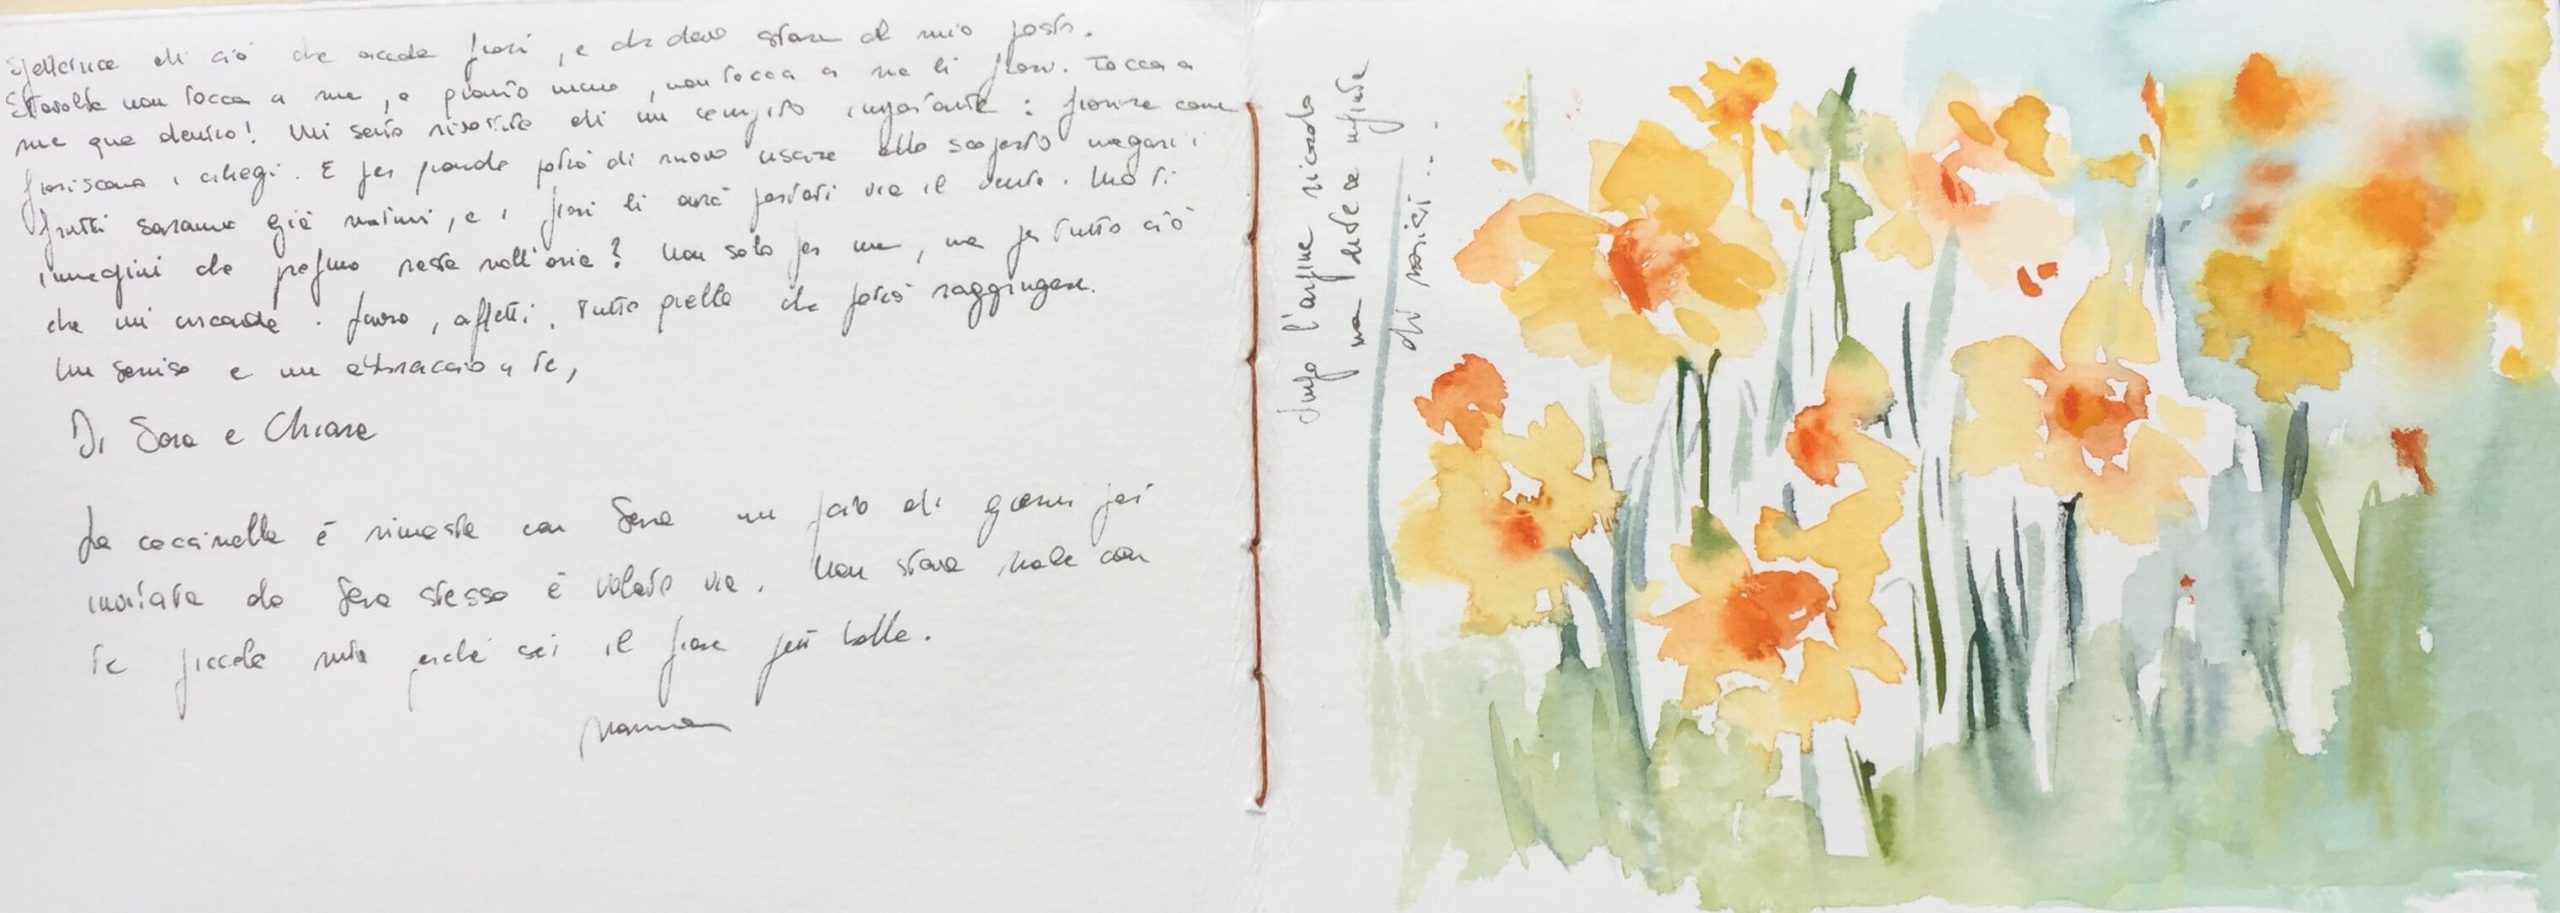 Spettatrice di ciò che accade fuori, e che devo stare al mio posto.
Stavolta non tocca a me, e quanto meno, non tocca a me lì fuori. Tocca a
me qua dentro! Mi sento investita di un compito importante: fiorire come
fioriscono i ciliegi. E per quando potrò di nuovo uscire allo scoperto magari i
frutti saranno già maturi, e i fiori li avrà portati via il vento. Ma ti
immagini che profumo resta nell'aria? Non solo per me, ma per tutto ciò
che mi circonda. Lavoro, affetti, tutto quello che potrò raggiungere.
Un sorriso e un abbraccio a te,
Di Sara e Chiara
La coccinella è rimasta con Sara un paio di giorni poi
invitata da Sara stessa è volata via. Non stava male con
te piccola mia perché sei il fiore più bello.
Mamma
lungo l'argine piccolo
ma distese infinite
di narcisi...